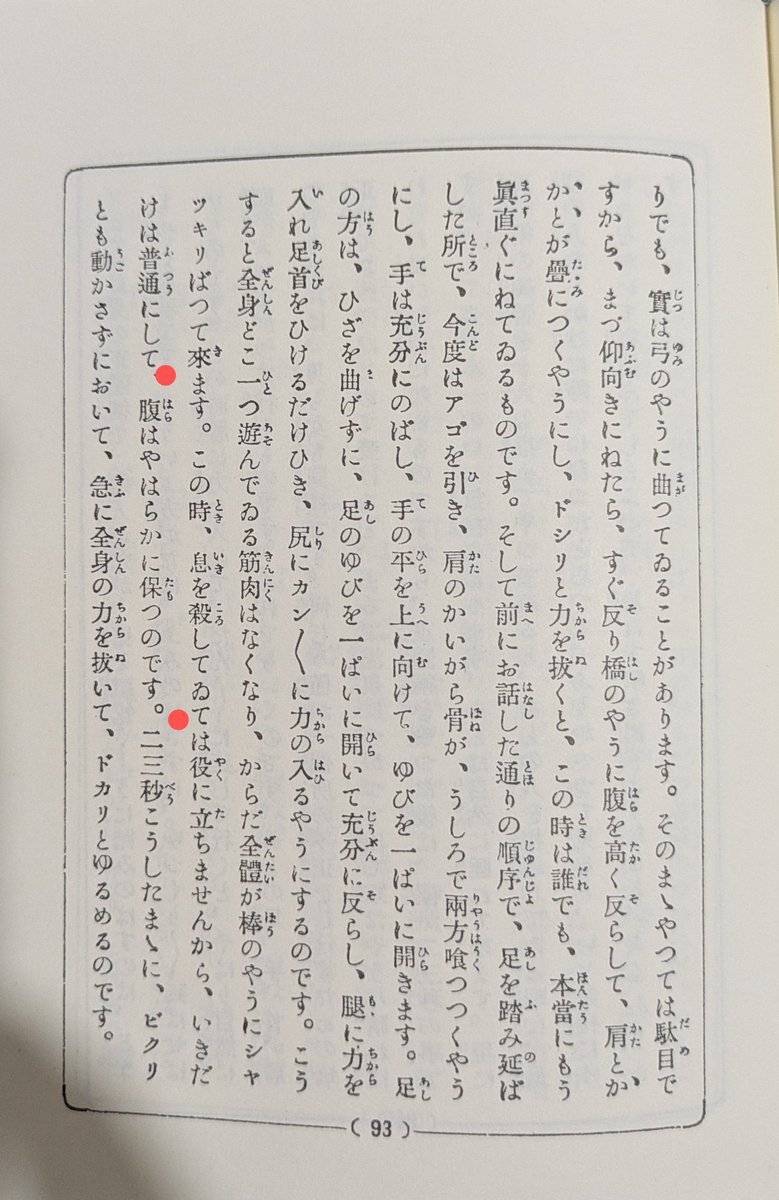 りでも、實は弓のやうに曲つてゐることがあります。そのまゝやつては駄目で
すから、まづ仰向きにねたら、すぐ反り橋のやうに腹を高く反らして、肩とか
かとが疊につくやうにし、ドシリと力を拔くと、この時は誰でも、本當にもう
眞直ぐにねてゐるものです。そして前にお話した通りの順序で、足を踏み延ば
した所で、今度はアゴを引き、肩のかいがら骨が、うしろで兩方喰つつくやう
にし、手は充分にのばし、手の平を上に向けて、ゆびを一ぱいに開きます。足
の方は、ひざを曲げずに、足のゆびを一ぱいに開いて充分に反らし、腿に力を
入れ足首をひけるだけひき、尻にカン〳〵に力の入るやうにするのです。こう
すると全身どこ一つ遊んでゐる筋肉はなくなり、からだ全體が棒のやうにシャ
ツキリばつて來ます。この時、息を殺してゐては役に立ちませんから、いきだ
けは普通にして、腹はやはらかに保つのです。二三秒こうしたまゝに、ビクリ
とも動かさずにおいて、急に全身の力を拔いて、ドカリとゆるめるのです。
( 93 )